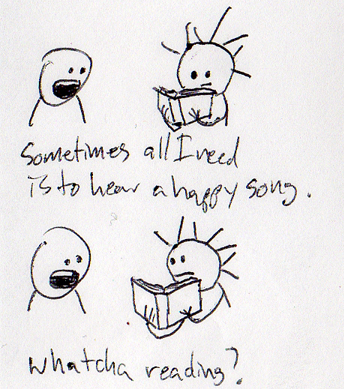 Sometimes all I need
is to hear a happy song.
whatcha reading?